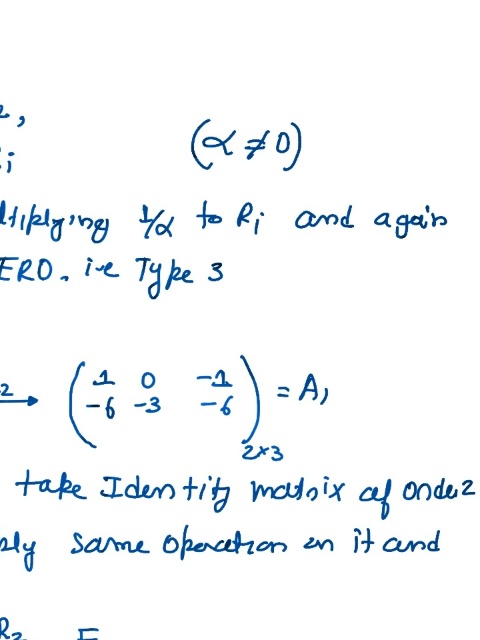 (α ≠ 0)
multiplying 1/α to Ri and again
ZERO. i.e Type 3
2 → ( 1 0 -1 ; -6 -3 -6 ) 2×3 = A1
take Identity matrix of order 2
same operation on it and
R2 E